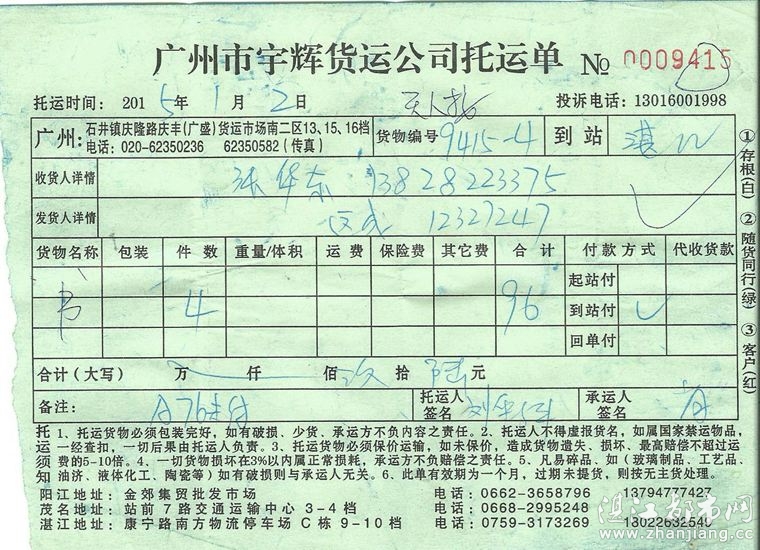 广州市宇辉货运公司托运单 № 0009415
托运时间：2015年1月2日 投诉电话：13016001998
广州：石井镇庆隆路庆丰(广盛)货运市场南二区13、15、16档
电话：020-62350236 62350582（传真）
货物编号 9415-4 到站 湛江
收货人详情 张华东 13828223375
发货人详情 12327247
货物名称 包装 件数 重量/体积 运费 保险费 其它费 合计 付款方式 代收货款
起站付
书 4 96 到站付 ✓
回单付
合计（大写） 万 仟 佰 玖 拾 陆 元
备注： 托运人签名 承运人签名
托运须知
1、托运货物必须包装完好，如有破损、少货、承运方不负内容之责任。2、托运人不得虚报货名，如属国家禁运物品，
一经查扣，一切后果由托运人负责。3、托运货物必须保价运输，如未保价，造成货物遗失、损坏、最高赔偿不超过运
费的5-10倍。4、一切货物损坏在3%以内属正常损耗，承运方不负赔偿之责任。5、凡易碎品、如（玻璃制品、工艺品、
油济、液体化工、陶瓷等）如有破损则与承运人无关。6、此单有效期为一个月，过期未提货，则按无主货处理。
阳江地址：金郊集贸批发市场 电话：0662-3658796 13794777427
茂名地址：站前7路交通运输中心3-4档 电话：0668-2995248
湛江地址：康宁路南方物流停车场C栋9-10档 电话：0759-3173269 13022632540
①存根(白) ②随货同行(绿) ③客户(红)
湛江都市网
www.zhanjiang.cc